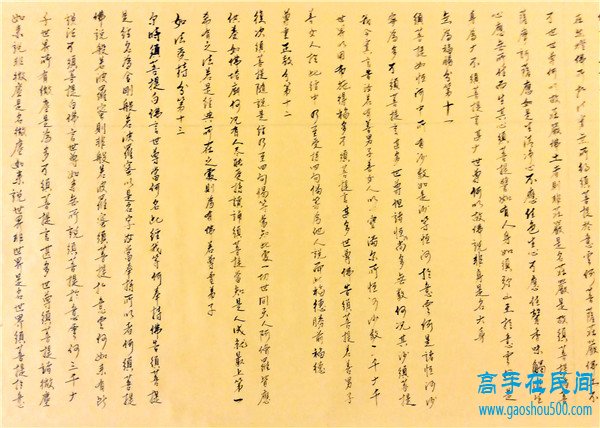 在然燈佛所於法實無所得須菩提於意云何菩薩莊嚴佛土不
不也世尊何以故莊嚴佛土者則非莊嚴是名莊嚴是故須菩提諸菩
薩摩訶薩應如是生清淨心不應住色生心不應住聲香味觸法生
心應無所住而生其心須菩提譬如有人身如須彌山王於意云何是
身為大不須菩提言甚大世尊何以故佛說非身是名大身
無為福勝分第十一
須菩提如恒河中所有沙數如是沙等恒河於意云何是諸恒河沙
寧為多不須菩提言甚多世尊但諸恒河尚多無數何況其沙須菩提
我今實言告汝若有善男子善女人以七寶滿爾所恒河沙數三千大千
世界以用布施得福多不須菩提言甚多世尊佛告須菩提若善男子
善女人於此經中乃至受持四句偈等為他人說而此福德勝前福德
尊重正教分第十二
復次須菩提隨說是經乃至四句偈等當知此處一切世間天人阿修羅皆應
供養如佛塔廟何況有人盡能受持讀誦須菩提當知是人成就最上第一
希有之法若是經典所在之處則為有佛若尊重弟子
如法受持分第十三
尒時須菩提白佛言世尊當何名此經我等云何奉持佛告須菩提
是經名為金剛般若波羅蜜以是名字汝當奉持所以者何須菩提
佛說般若波羅蜜則非般若波羅蜜須菩提於意云何如來有所
說法不須菩提白佛言世尊如來無所說須菩提於意云何三千大
千世界所有微塵是為多不須菩提言甚多世尊須菩提諸微塵
如來說非微塵是名微塵如來說世界非世界是名世界須菩提於意
高手在民间
www.gaoshou500.com